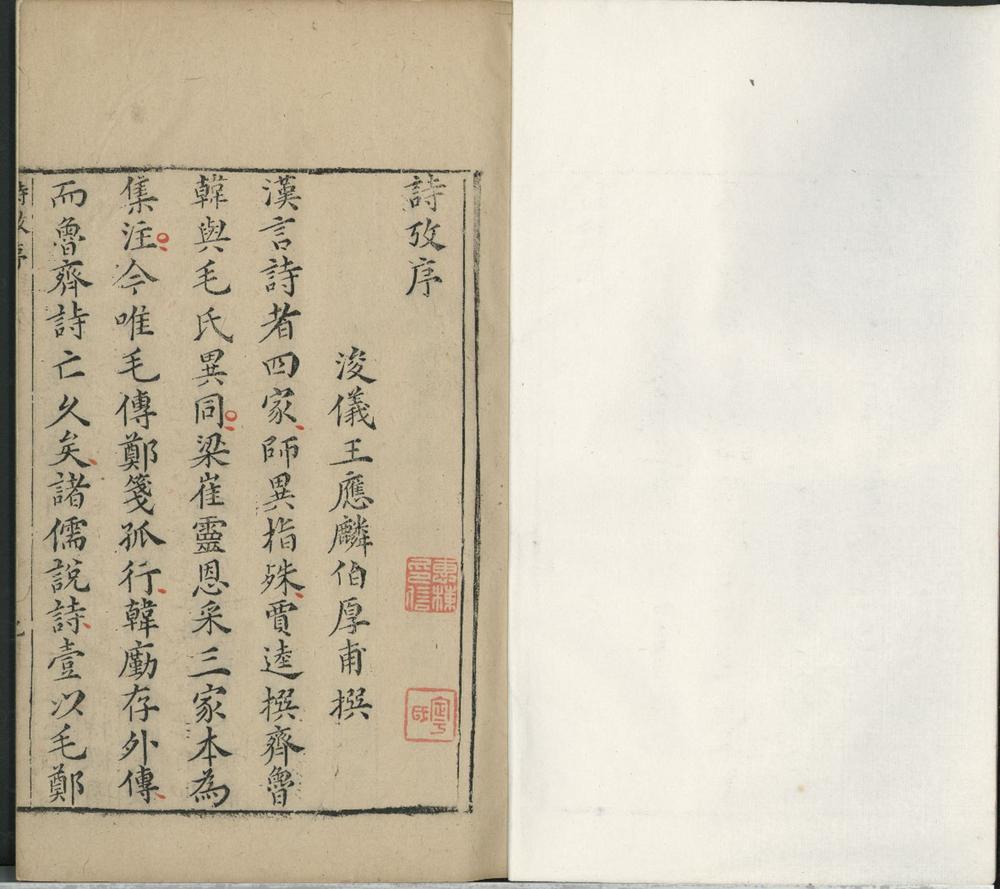 詩攷序
浚儀王應麟伯厚甫撰
漢言詩者四家師異指殊賈逵撰齊魯
韓與毛氏異同梁崔靈恩采三家本為
集注今唯毛傳鄭箋孤行韓廑存外傳
而魯齊詩亡久矣諸儒說詩壹以毛鄭
詩攷序
惠棟
之印
定宇